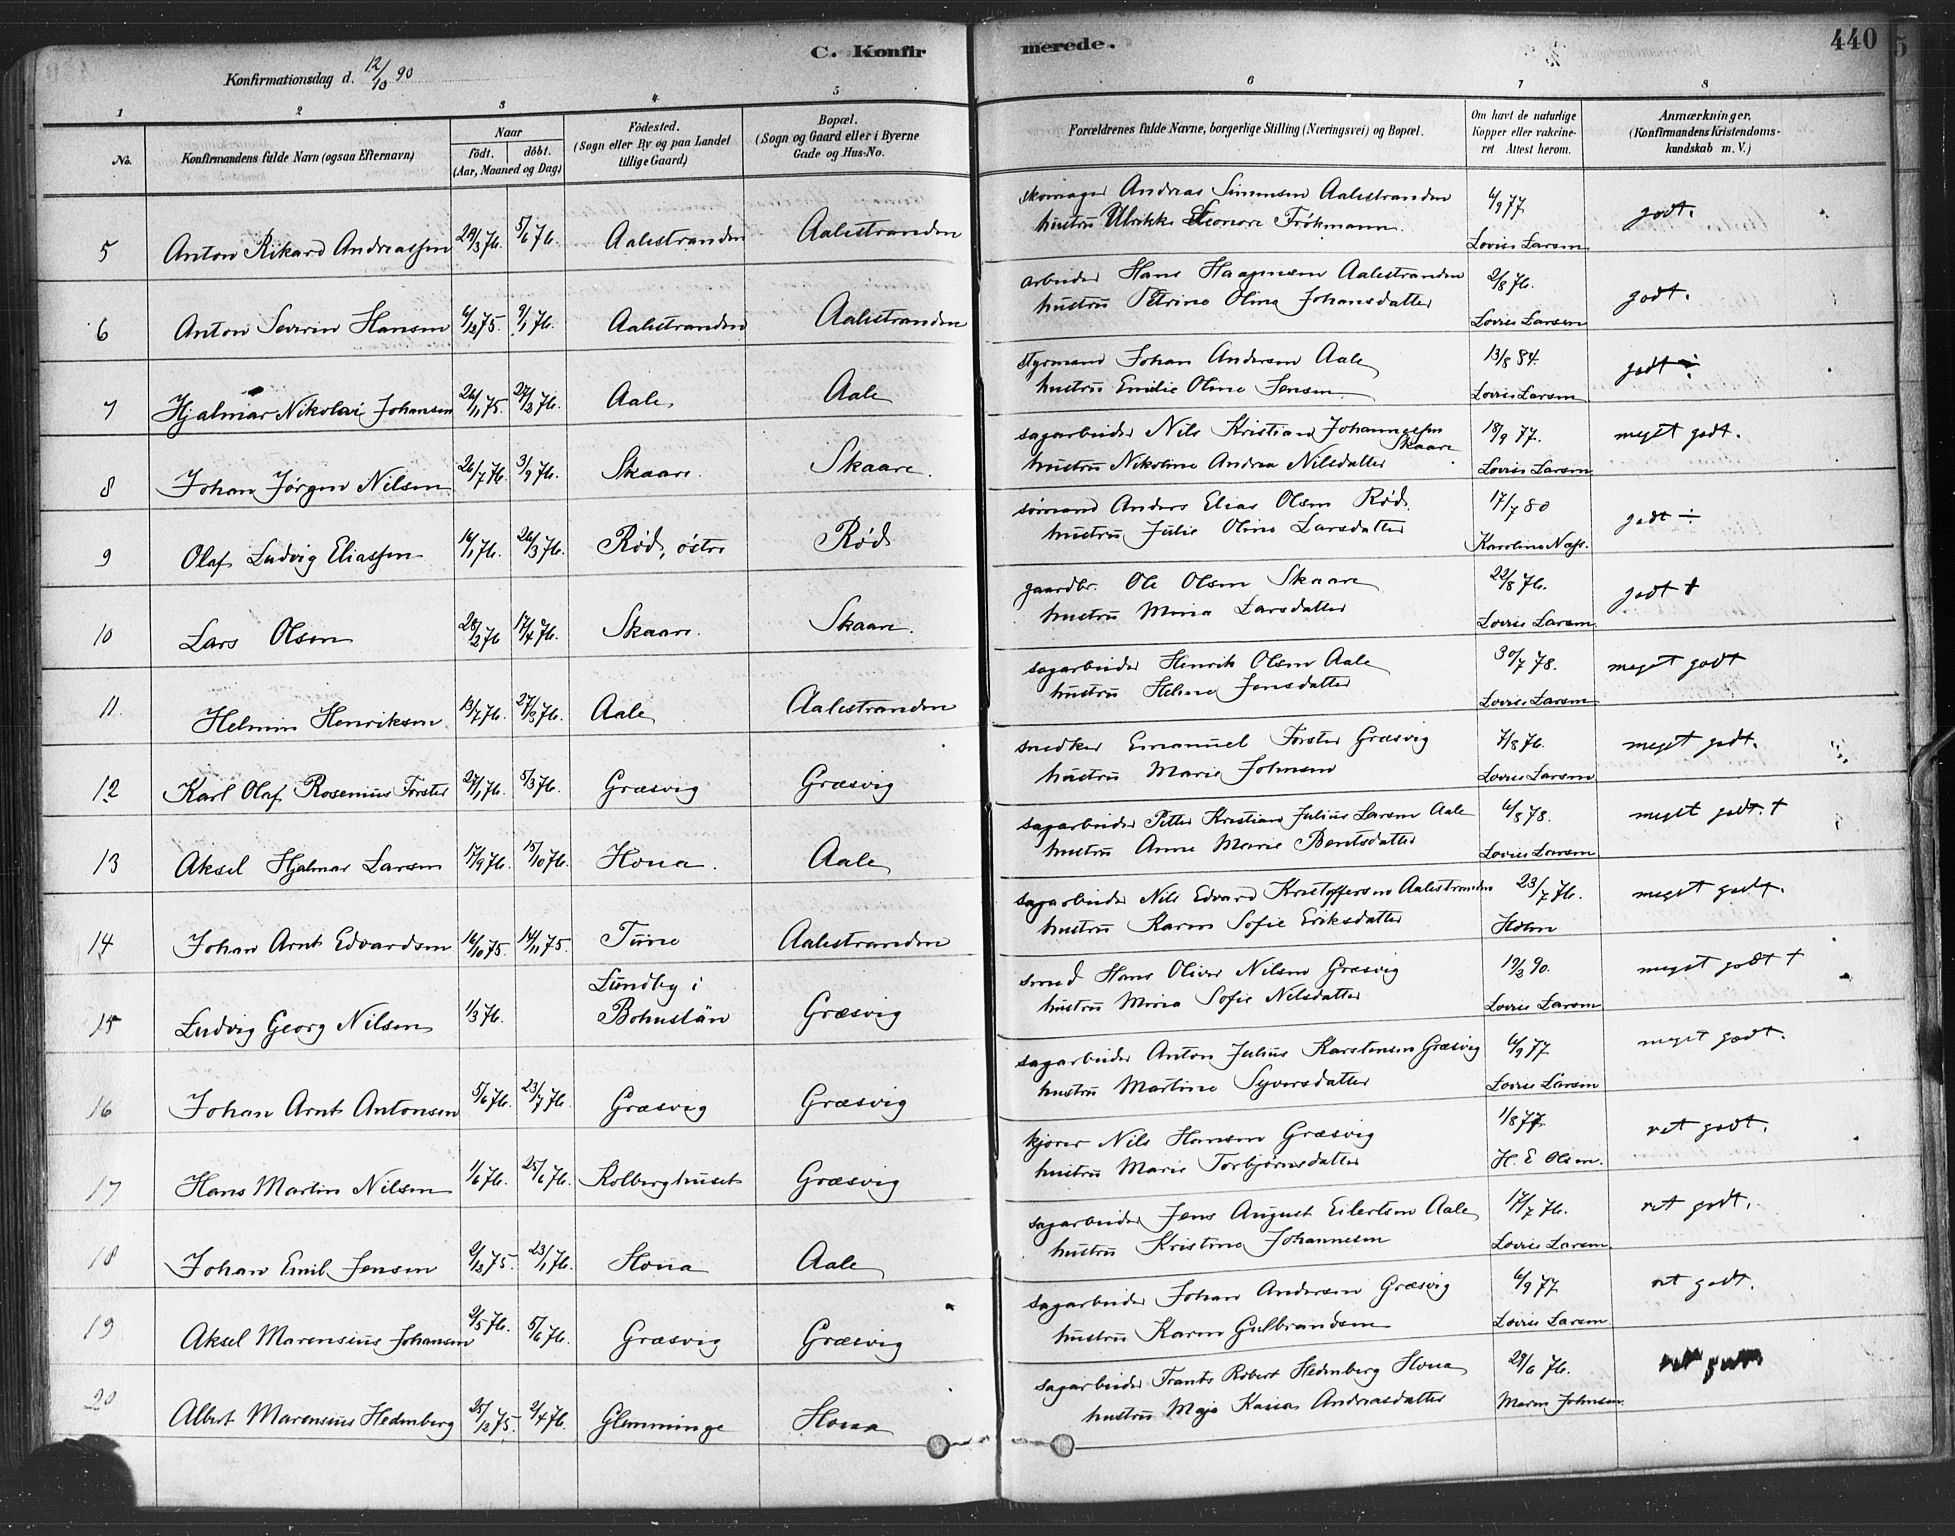 C. Konfirmerede. 440
Konfirmationsdag d. 12/10 90
1 2 3 4 5 6 7 8
No. Konfirmandens fulde Navn (ogsaa Efternavn) Naar födt. döbt. (Aar, Maaned og Dag) Födested. (Sogn eller By og paa Landet tillige Gaard) Bopæl. (Sogn og Gaard eller i Byerne Gade og Hus-No. Forældrenes fulde Navne, borgerlige Stilling (Næringsvei) og Bopæl. Om havt de naturlige Kopper eller vakcineret. Attest herom. Anmærkninger. (Konfirmandens Kristendomskundskab m. V.)
5 Anton Rikard Andreassen 29/3 76. 5/6 76. Aalestranden Aalestranden skomager Andreas Simensen Aalestranden 6/9 77 godt.
hustru Ulrikke Eleonore Frökmann. Lovise Larsen
6 Anton Severin Hansen 6/12 75. 9/1 76. Aalestranden Aalestranden arbeider Hans Haagensen Aalestranden 2/8 76. godt.
hustru Petrine Oline Johansdatter Lovise Larsen
7 Hjalmar Nikolai Johansen 26/11 75. 27/2 76. Aale Aale styrmand Johan Andersen Aale 13/8 84. godt ÷
hustru Emilie Oline Jensen Lovise Larsen
8 Johan Jörgen Nilsen 26/7 76. 3/9 76. Skaare. Skaare. sagarbeider Nils Kristian Johannessen Skaare 18/9 77. meget godt.
hustru Nikoline Andrea Nilsdatter Lovise Larsen
9 Olaf Ludvig Eliassen 16/1 76. 26/3 76. Röd, östre Röd sömand Anders Elias Olsen Röd. 17/7 80 godt ÷
hustru Julie Oline Larsdatter Karoline Næss.
10 Lars Olsen 28/2 76 17/4 76. Skaare. Skaare. gaardbr. Ole Olsen Skaare 22/8 76. godt +
hustru Mina Larsdatter Lovise Larsen
11. Helmin Henriksen 13/7 76. 27/8 76. Aale Aalestranden sagarbeider Henrik Olsen Aale 30/7 78. meget godt
hustru Helene Jensdatter Lovise Larsen
12 Karl Olaf Rosenius Forster 27/1 76. 5/3 76. Græsvig Græsvig snedker Emanuel Forster Græsvig 7/8 76. meget godt.
hustru Marie Johnsen Lovise Larsen
13 Aksel Hjalmar Larsen 17/9 76. 15/10 76. Houa. Aale sagarbeider Petter Kristian Julius Larsen Aale 6/8 78. meget godt. +
hustru Anne Marie Bentsdatter Lovise Larsen
14 Johan Arnt Edvardsen 16/10 75. 14/11 75. Tune Aalestranden sagarbeider Nils Edvard Kristoffersen Aalestranden 23/7 76. meget godt.
hustru Karen Sofie Eriksdatter Holm
15 Ludvig Georg Nilsen 1/3 76. Lundby i Bohuslän Græsvig smed Hans Oliver Nilsen Græsvig 19/3 90. meget godt +
hustru Mina Sofie Nilsdatter Lovise Larsen
16 Johan Arnt Antonsen 5/6 76. 23/7 76. Græsvig Græsvig sagarbeider Anton Julius Karstensen Græsvig 6/9 77 meget godt.
hustru Martine Syversdatter Lovise Larsen
17 Hans Martin Nilsen 1/6 76. 25/6 76. Kolberghuset Græsvig kjører Nils Hansen Græsvig 1/8 77 ret godt.
hustru Marie Torbjørnsdatter H. E Olsen.
18 Johan Emil Jensen 2/12 75. 23/1 76. Houa Aale sagarbeider Jens August Eilertsen Aale 17/7 76. ret godt.
hustru Kristine Johannesen Lovise Larsen.
19 Aksel Marensius Johansen 2/5 76. 5/6 76. Græsvig Græsvig sagarbeider Johan Andersen Græsvig 6/9 77 ret godt.
hustru Karen Gulbrandsen Lovise Larsen.
20 Albert Marensius Hedenberg 25/12 75. 2/4 76. Glemminge Houa sagarbeider Frants Robert Hedenberg Houa 29/6 76. ret godt.
hustru Maja Kaisa Andreasdatter Maren Johnsen.